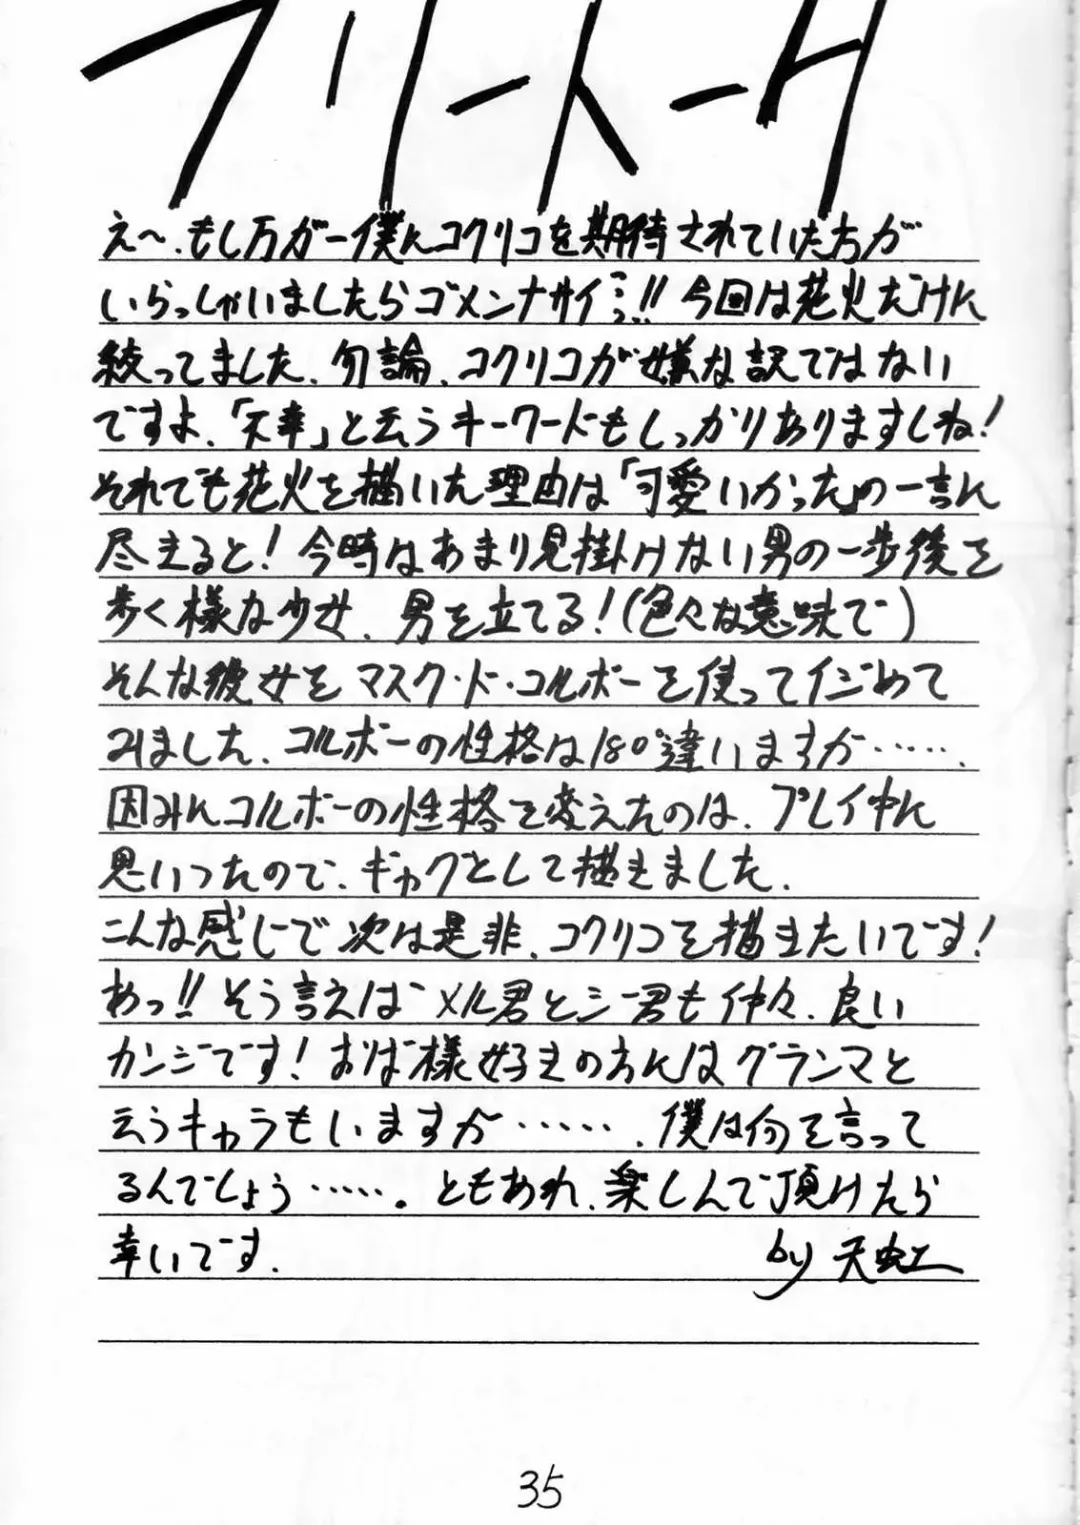 フリートーク
え〜、もし万が一僕にコクリコを期待されていた方が
いらっしゃいましたらゴメンナサイ…!! 今回は花火だけに
絞ってました、勿論、コクリコが嫌な訳ではない
ですよ、「不幸」と云うキーワードもしっかりありますしね!
それでも花火を描いた理由は「可愛いかった」の一言に
尽えると! 今時はあまり見掛けない男の一歩後を
歩く様な少女、男を立てる!(色々な意味で)
そんな彼女をマスク・ド・コルボーを使ってイジめて
みました、コルボーの性格は180°違いますが……、
因みにコルボーの性格を変えたのは、プレイ中に
思いつたので、ギャグとして描きました、
こんな感じで次は是非、コクリコを描きたいです!
あっ!! そう言えばメル君とシー君も仲々、良い
カンジです! おば様好きの方にはグランマと
云うキャラもいますが……、僕は何を言って
るんでしょう……。ともあれ、楽しんで頂けたら
幸いです、
by 天虹
35